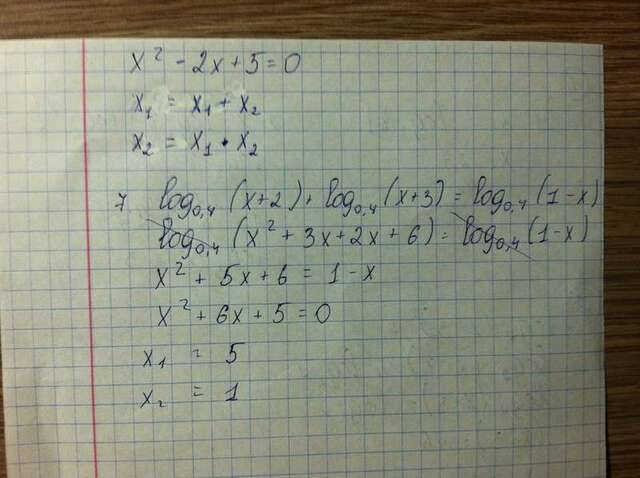 x² - 2x + 5 = 0
x₁ = x₁ + x₂
x₂ = x₁ • x₂
7 log₀,₄ (x+2) + log₀,₄ (x+3) = log₀,₄ (1-x)
log₀,₄ (x² + 3x + 2x + 6) = log₀,₄ (1-x)
x² + 5x + 6 = 1 - x
x² + 6x + 5 = 0
x₁ = 5
x₂ = 1